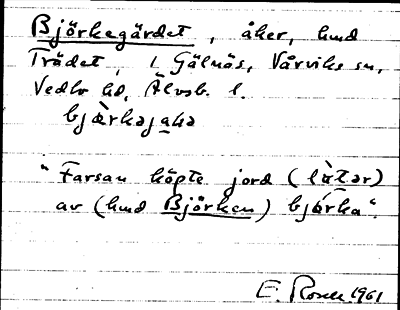 Björkegärdet, åker, hmd
Trädet, 1 Gälnäs, Vårviks sn,
Vedbo hd, Älvsb. l.
bjærkəja
"Farsan köpte jord (låtər)
av (hmd Björken) bjørka".
E. Rosell 1961